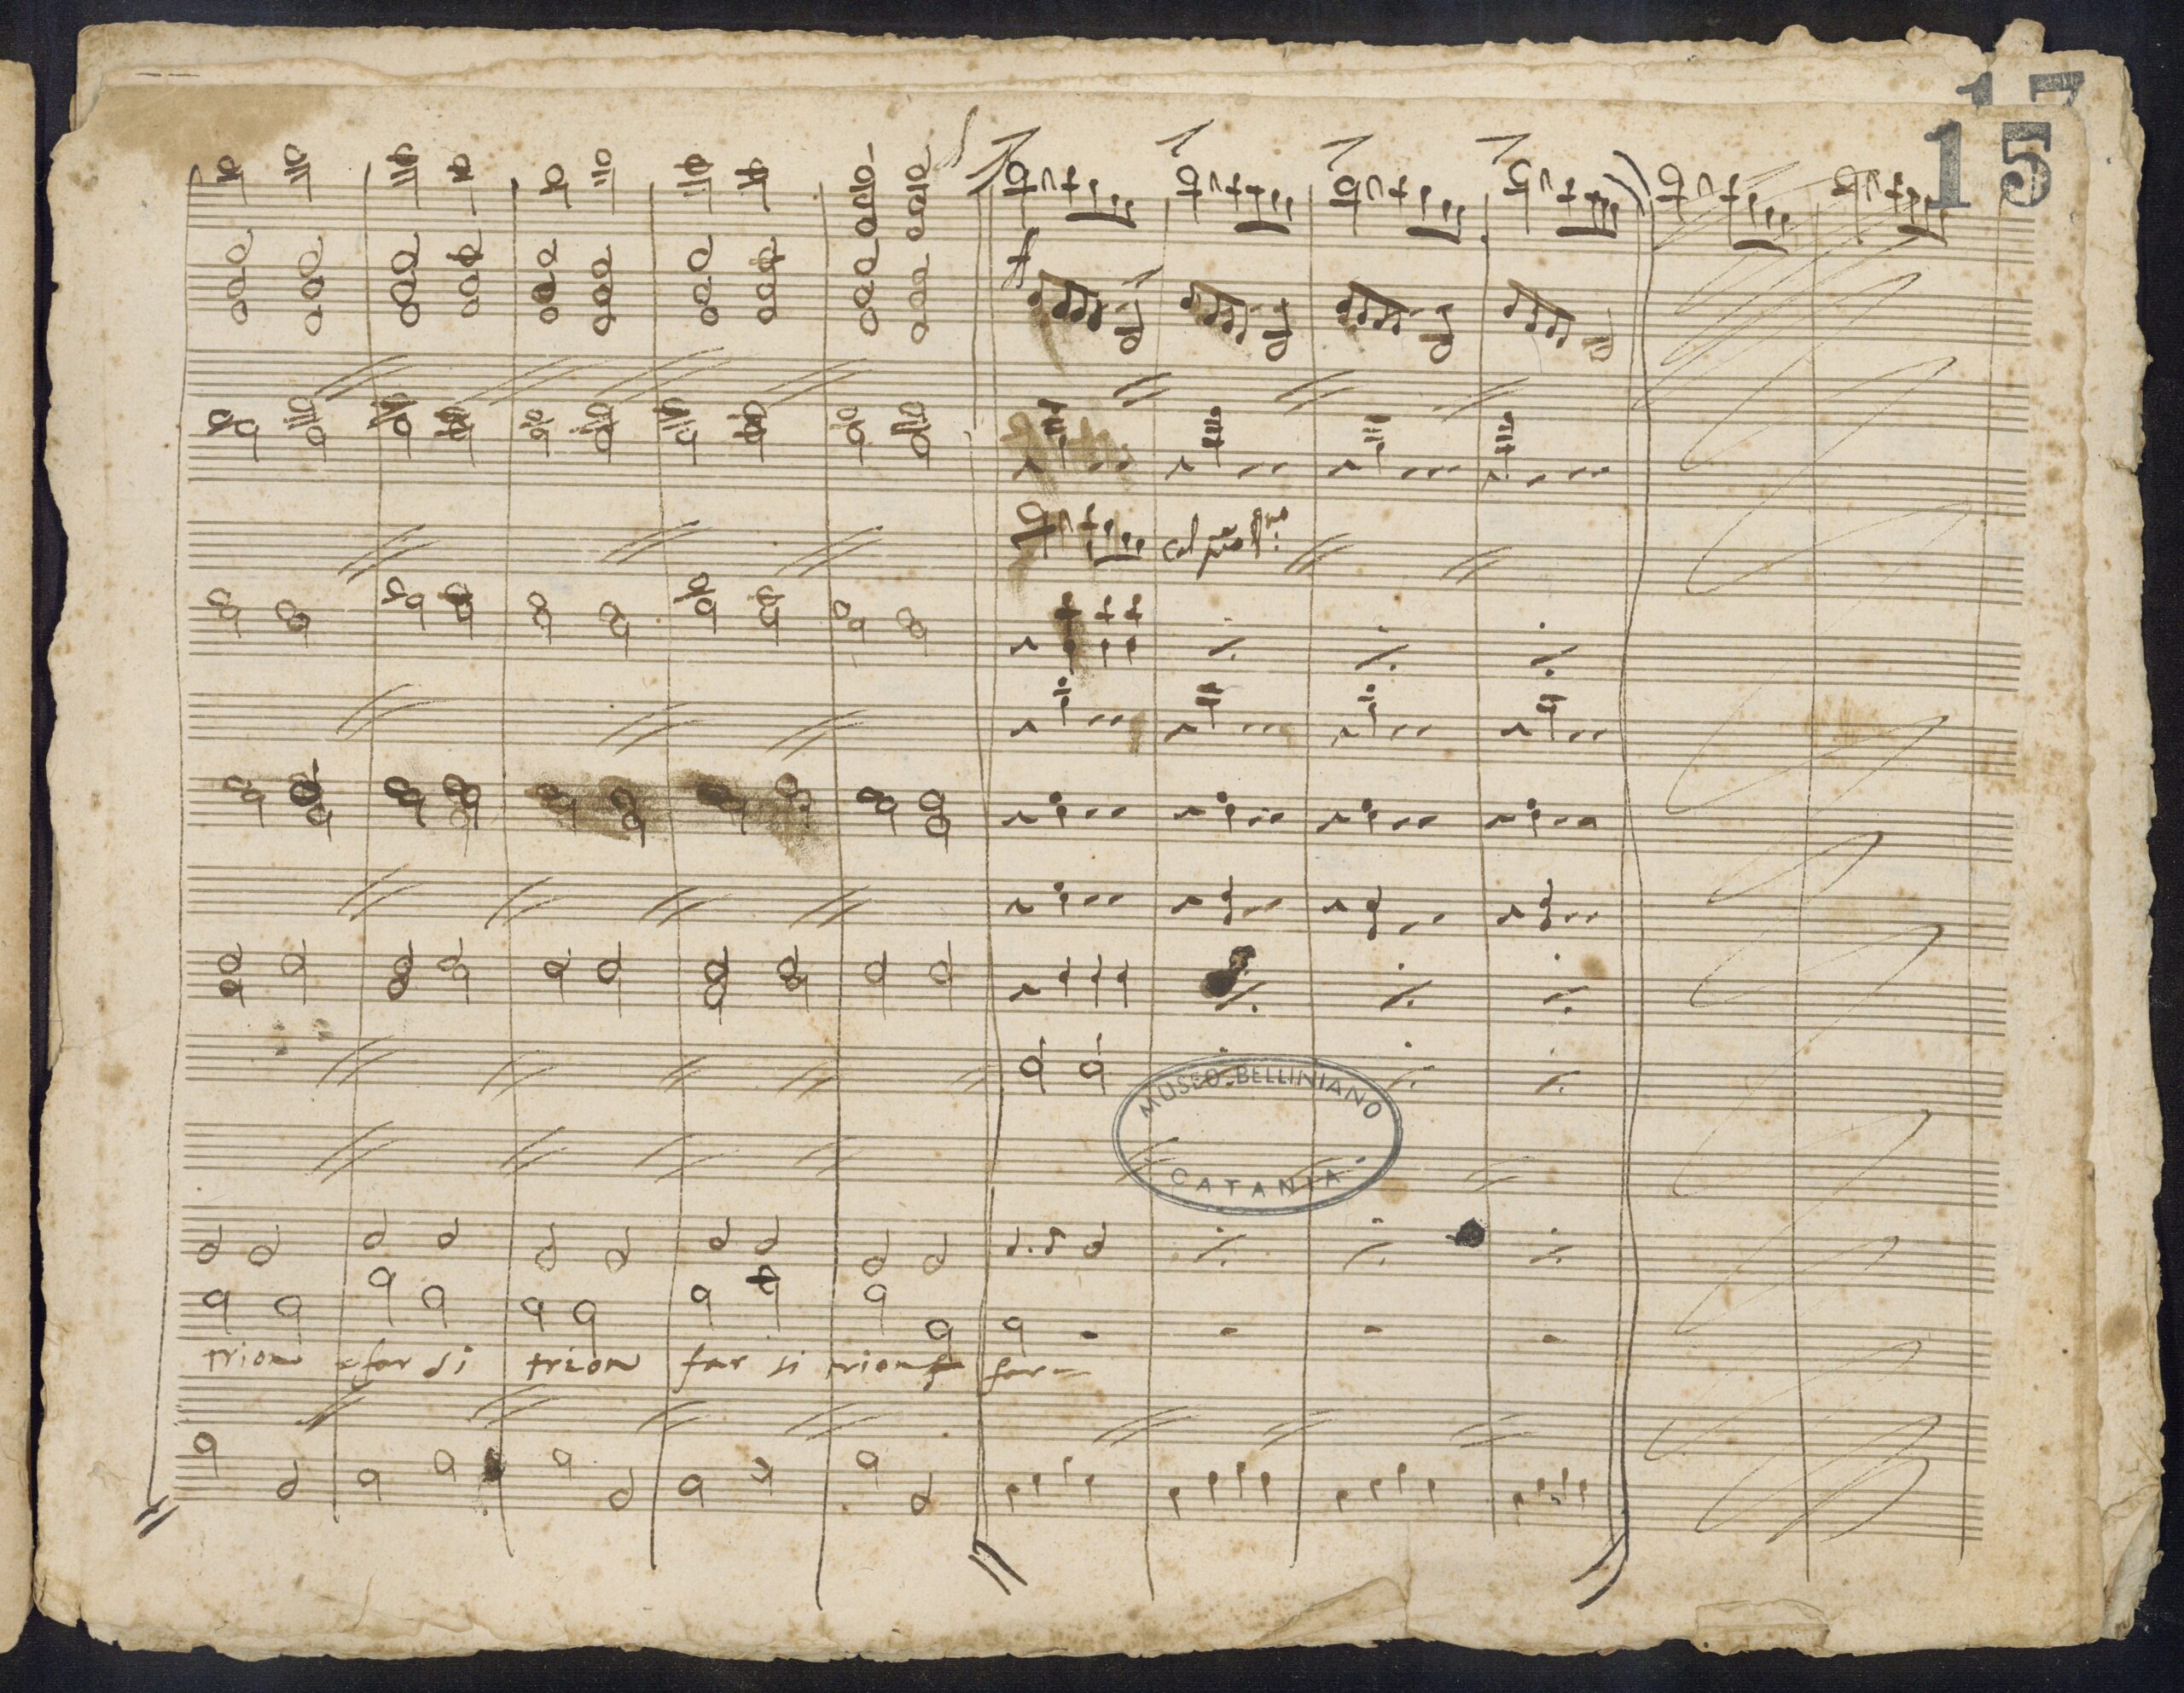 17
15
f
Col pmo Vno
MUSEO-BELLINIANO
CATANIA
trion far si trion far si trionf far